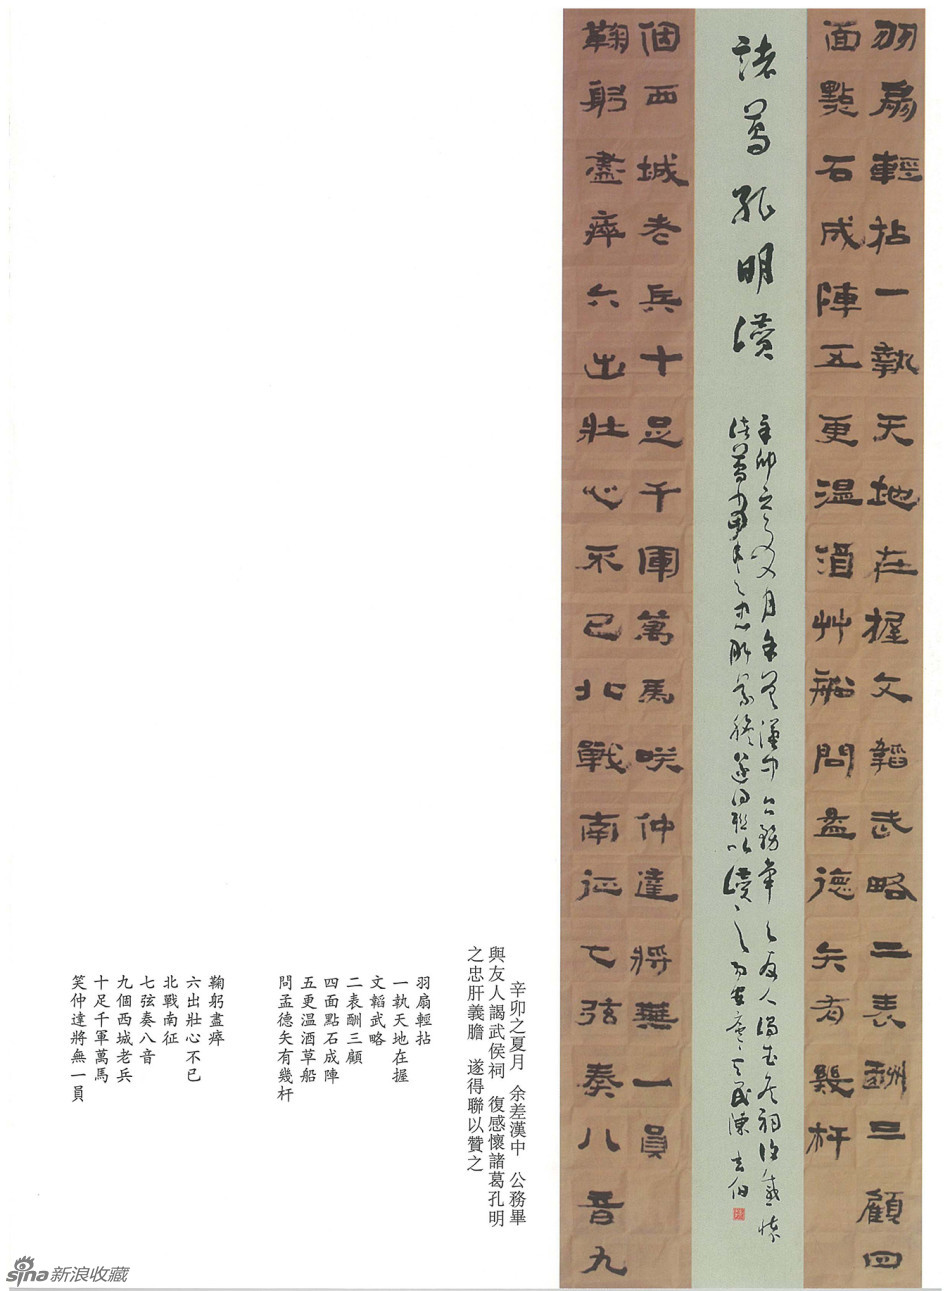 羽扇輕拈一執天地在握文韜武略二表酬三顧四
面點石成陣五更温酒艸船問孟德矢有幾杆
諸葛孔明讚
辛卯之夏月余差漢中公務畢與友人謁武侯祠復感懷
諸葛孔明之忠肝義膽遂得聯以讚之
鞠躬盡瘁六出壯心不已北戰南征七弦奏八音九
個西城老兵十足千軍萬馬咲仲達將無一員
辛卯之夏月 余差漢中 公務畢
與友人謁武侯祠 復感懷諸葛孔明
之忠肝義膽 遂得聯以贊之
羽扇輕拈
一執天地在握
文韜武略
二表酬三顧
四面點石成陣
五更温酒草船
問孟德矢有幾杆
鞠躬盡瘁
六出壯心不已
北戰南征
七弦奏八音
九個西城老兵
十足千軍萬馬
笑仲達將無一員
sina新浪收藏